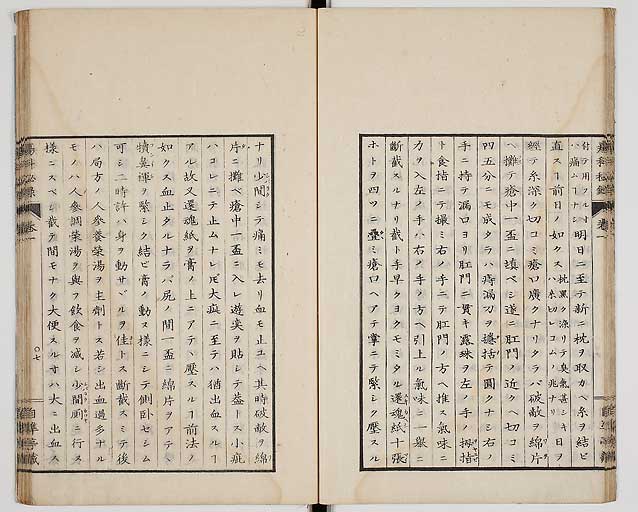 付テ用フルナリ明日ニ至テ新ニ枕ヲ取カヘ糸ヲ結ビ
ハ痛ムナシ
直スー前日ノ如クス枕黒ク漆リテ臭氣甚シキ日ヲ
ハ糸切レコムノ兆ナリ
經テ糸深ク切コミ瘡口廣クナリタラバ破敵ヲ綿片
ヘ攤テ瘡中一盃ニ填ベシ遂ニ肛門ノ近クヘ切コミ
四五分ニモ成タラハ痔漏刀ヲ
手ニ持テ漏口ヨリ肛門ニ貫キ露珠ヲ左ノ手ノ拇指
ト食指ニテ撮ミ右ノ手ニテ肛門ノ方ヘ推ス氣味ニ
力ヲ入左ノ手ハ右ノ手ノ方ヘ引上ル氣味ニ一舉ニ
斷截スルナリ截ト手早クヨクモミタル還魂紙十張
ホトヲ四ツニ疊ミ瘡口ヘアテ掌ニテ緊シク壓スル
ナリ少間シテ痛ミモ去リ血モ止ユヘ其時破敵ヲ綿
片ニ攤ベ瘡中一盃ニ入レ遊奕ヲ貼シテ蓋トス小疵
ハコレニテ止ムナレ𪜈大疵ニ至テハ猶出血スルー
アル故又還魂紙ヲ膏ノ上ニアテヽ壓スルー前法ノ
如クス血止タルナラバ尻ノ間一盃ニ綿片ヲアテヽ
犢鼻褌ヲ緊シク結ビ膏ノ動ヌ様ニシテ側臥セシム
可シ二時許ハ身ヲ動サヾルヲ佳トス斷截スミテ後
ハ局方ノ人參養榮湯ヲ主劑トス若シ出血過多ナル
モノハ人參調榮湯ヲ與フ飲食ヲ減シ少間厠ニ行ヌ
様ニスベシ截テ間モナク大便スルオハ大ニ出血ス
瘍科秘録
卷一
〇七